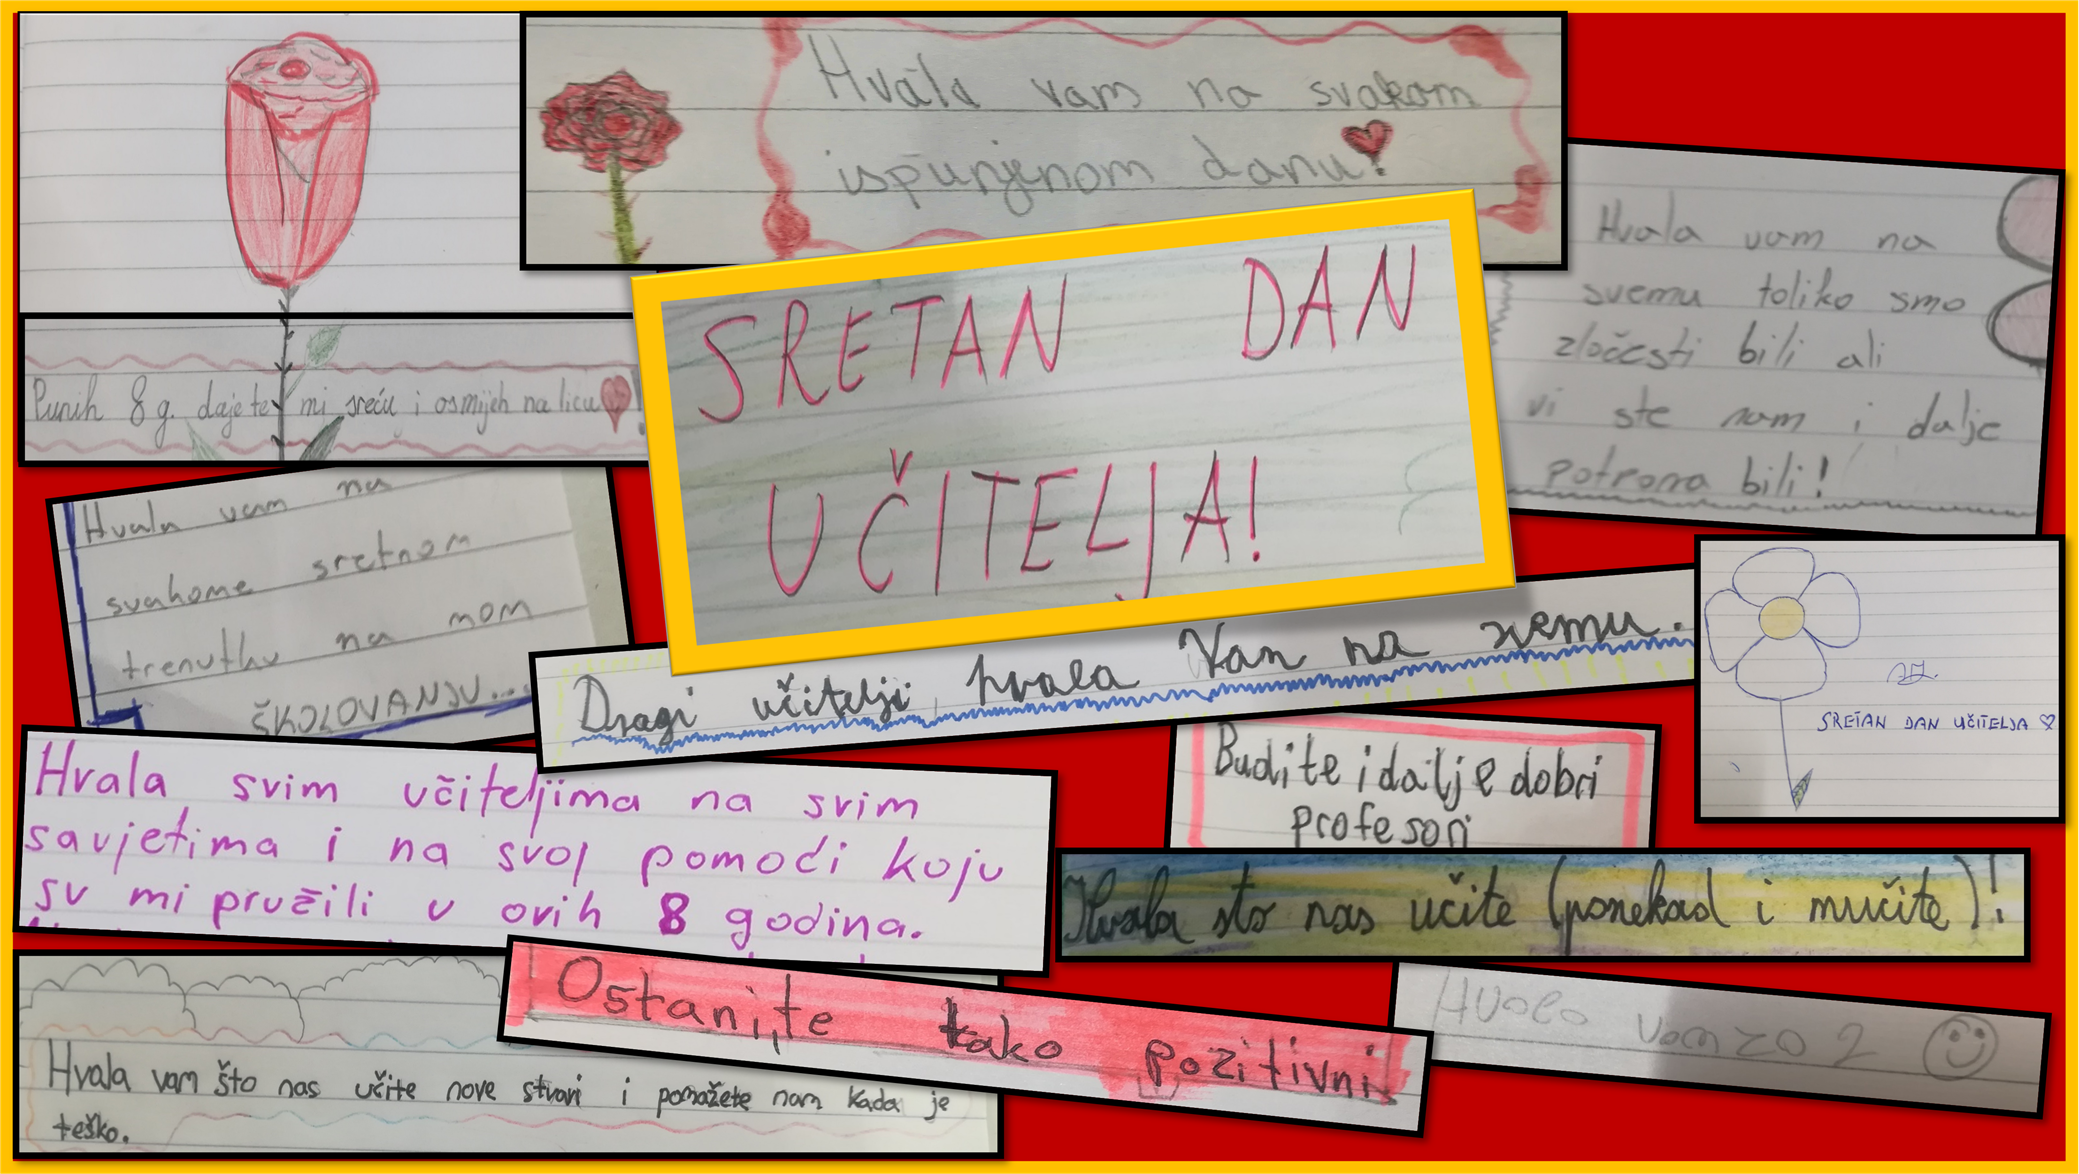 Hvala vam na svakom
ispunjenom danu!
Punih 8 g. dajete mi sreću i osmijeh na licu!
SRETAN DAN
UČITELJA!
Hvala vam na
svemu toliko smo
zločesti bili ali
vi ste nam i dalje
potrona bili!
Hvala vam na
svakome sretnom
trenutku na mom
ŠKOLOVANJU...
Dragi učitelji, hvala Vam na svemu.
SRETAN DAN UČITELJA
Hvala svim učiteljima na svim
savjetima i na svoj pomoći koju
su mi pružili u ovih 8 godina.
Budite i dalje dobri
profesori
Hvala sto nas učite (ponekad i mučite)!
Ostanite tako pozitivni
Hvala vam za 2
Hvala vam što nas učite nove stvari i pomažete nam kada je
teško.